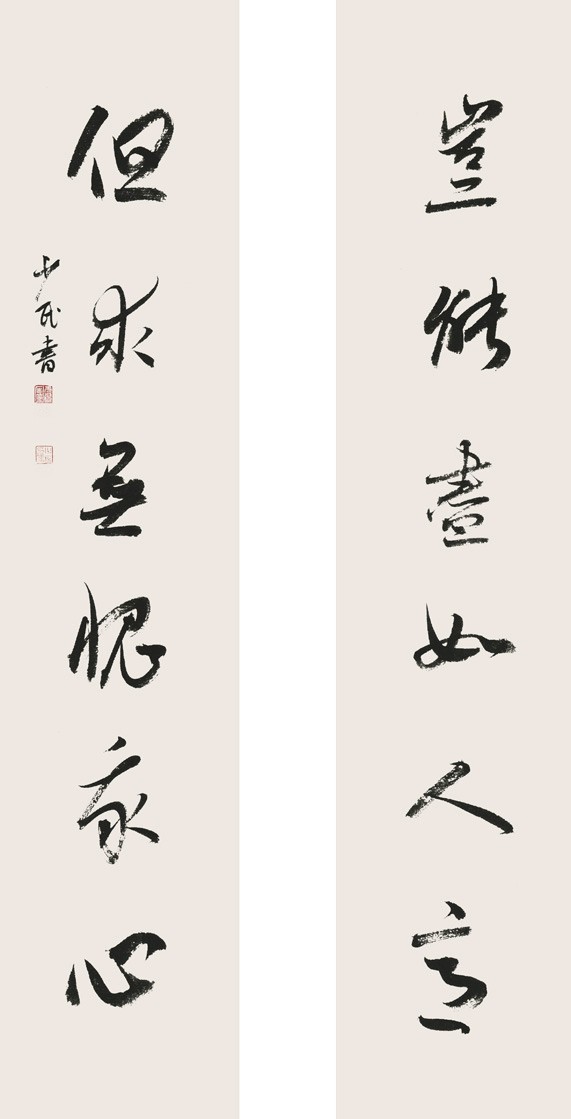 豈能盡如人意
但求無愧我心
少民書